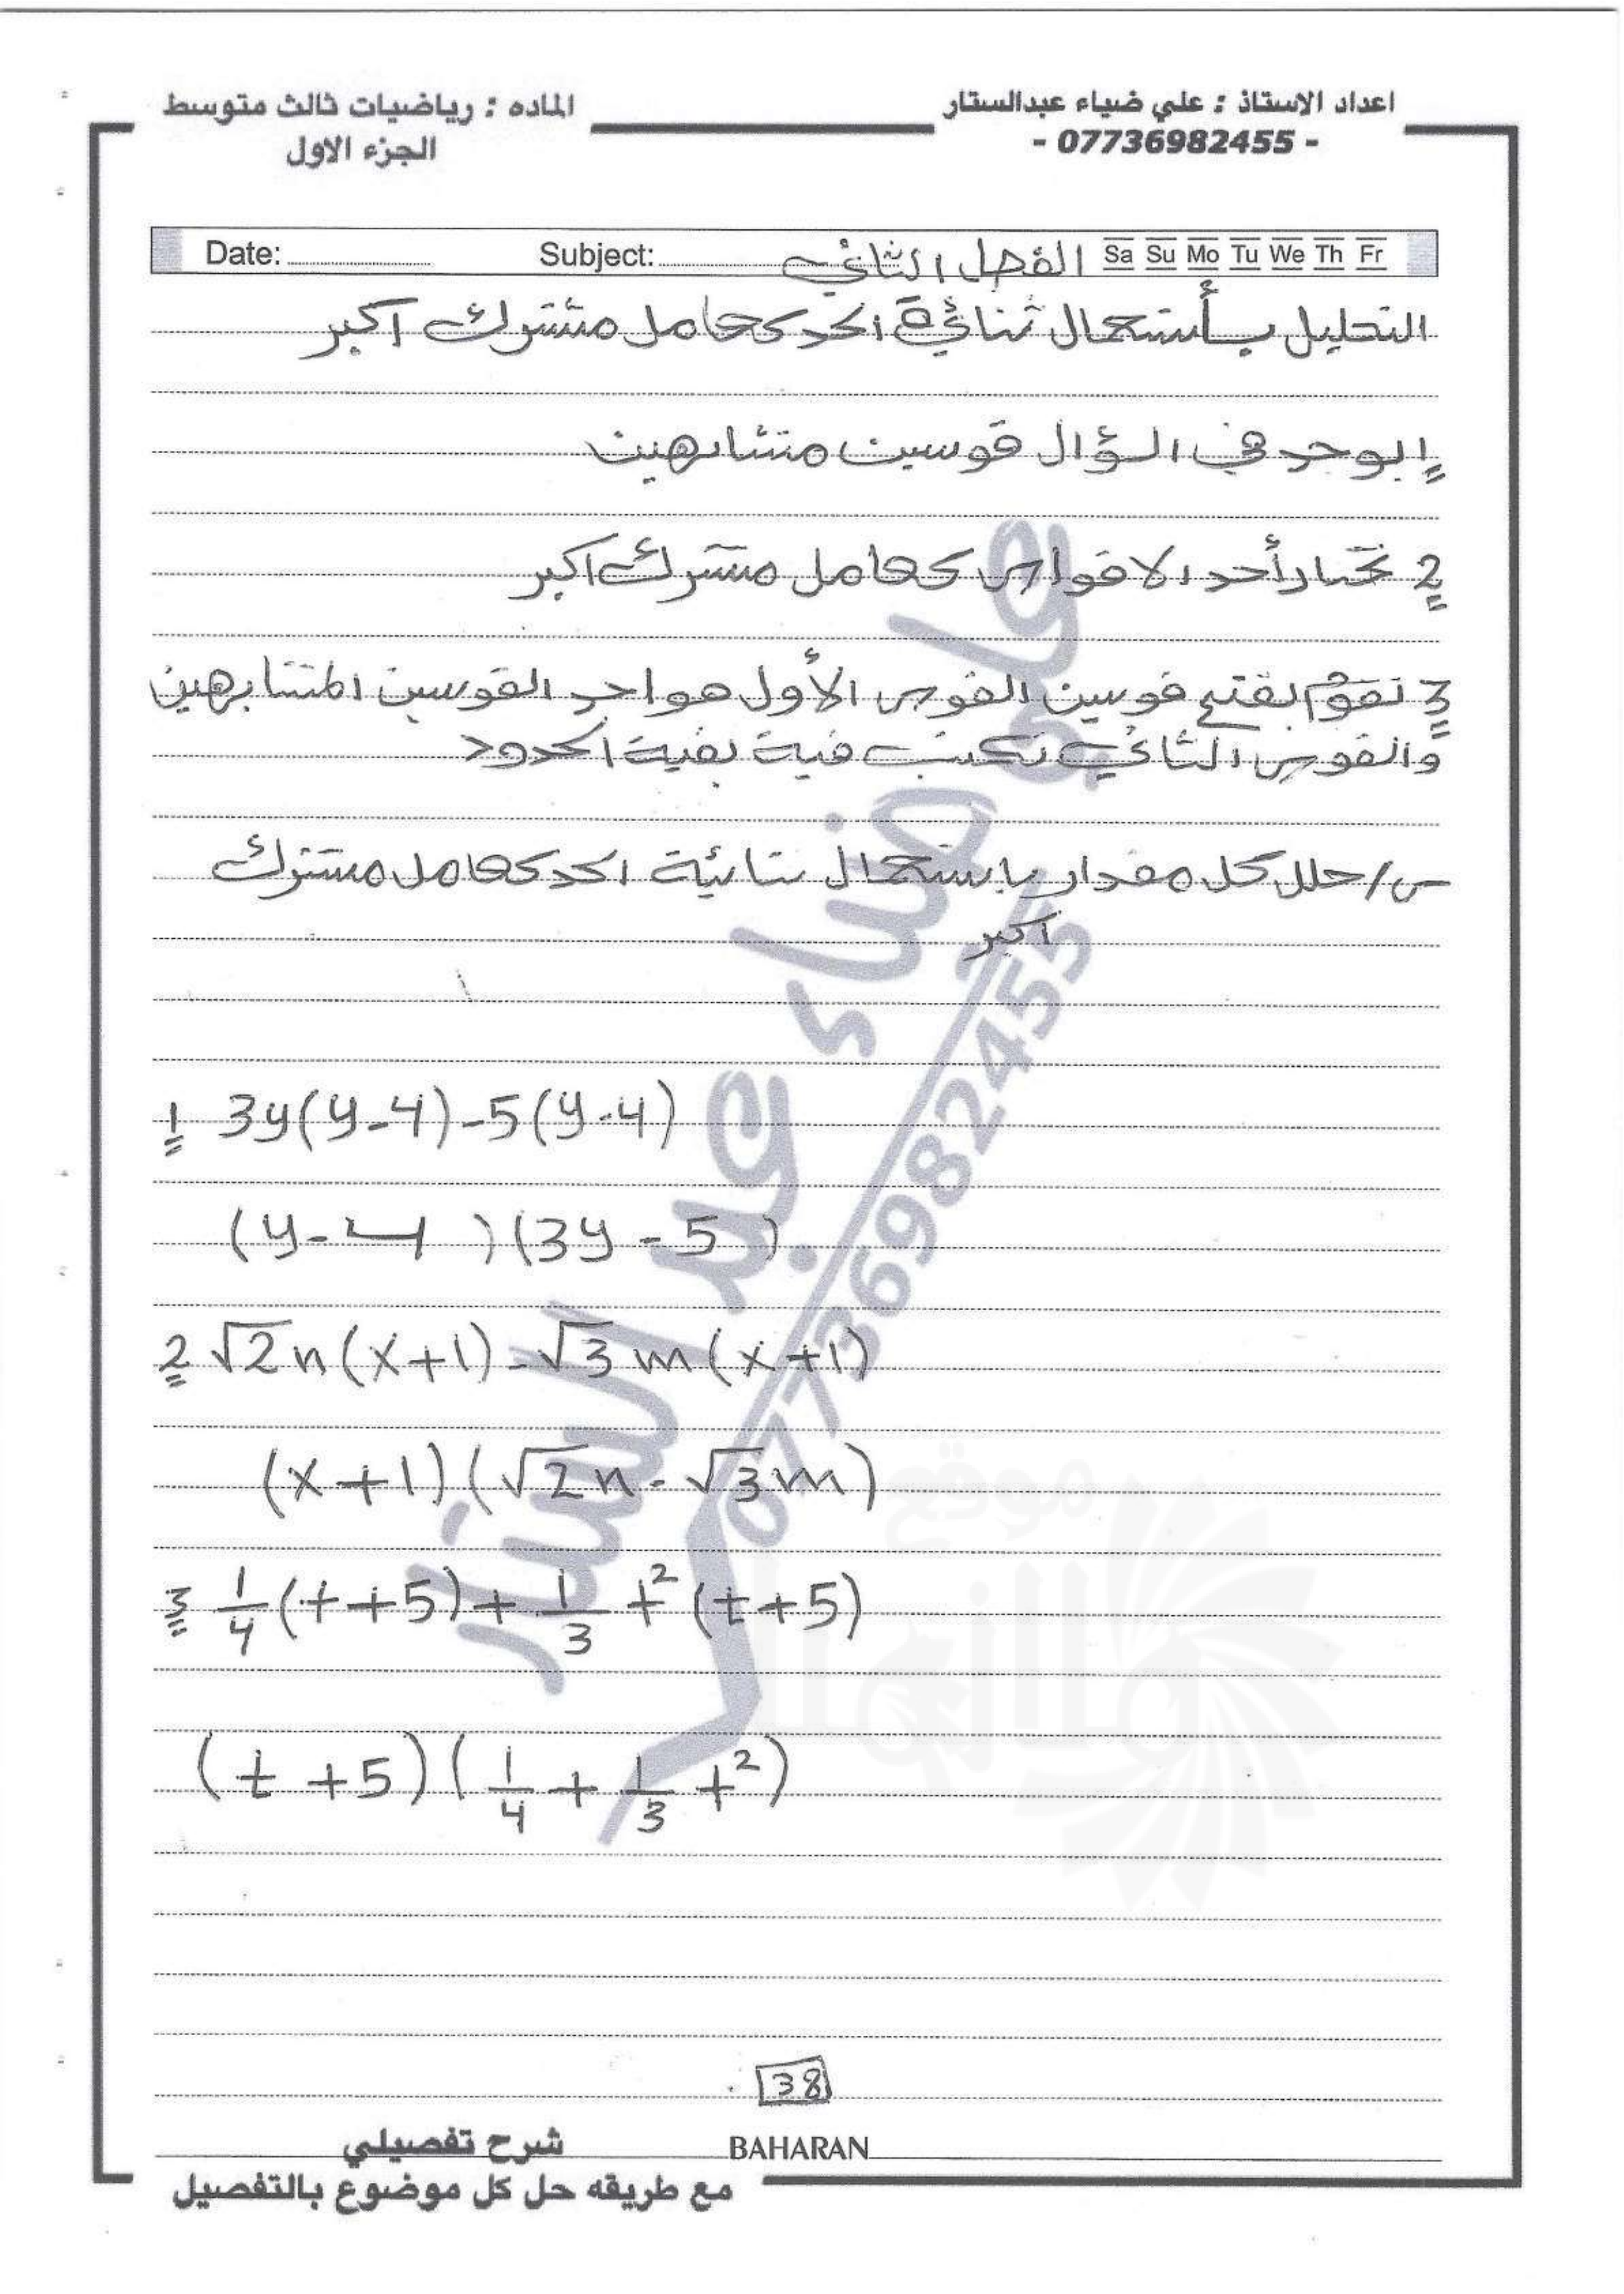 اعداد الاستاذ : علي ضياء عبدالستار
- 07736982455 -
الماده : رياضيات ثالث متوسط
الجزء الاول
Date: Subject: الفصل الثاني Sa Su Mo Tu We Th Fr
التحليل بأستعمال ثنائية الحد كعامل مشترك اكبر
1 يوجد في السؤال قوسين متشابهين
2 نختار أحد الاقواس كعامل مشترك اكبر
3 نقوم بفتح قوسين القوس الأول هو احد القوسين المتشابهين
والقوس الثاني نكتب فية بقية الحدود
س/ حلل كل مقدار باستعمال ثنائية الحد كعامل مشترك
اكبر
1 3y(y-4)-5(y-4)
(y-4)(3y-5)
2 √2n(x+1)-√3m(x+1)
(x+1)(√2n-√3m)
3 1/4(t+5)+1/3 t²(t+5)
(t+5)(1/4+1/3 t²)
38
BAHARAN
شرح تفصيلي
مع طريقه حل كل موضوع بالتفصيل
علي ضياء عبد الستار
07736982455
موقع